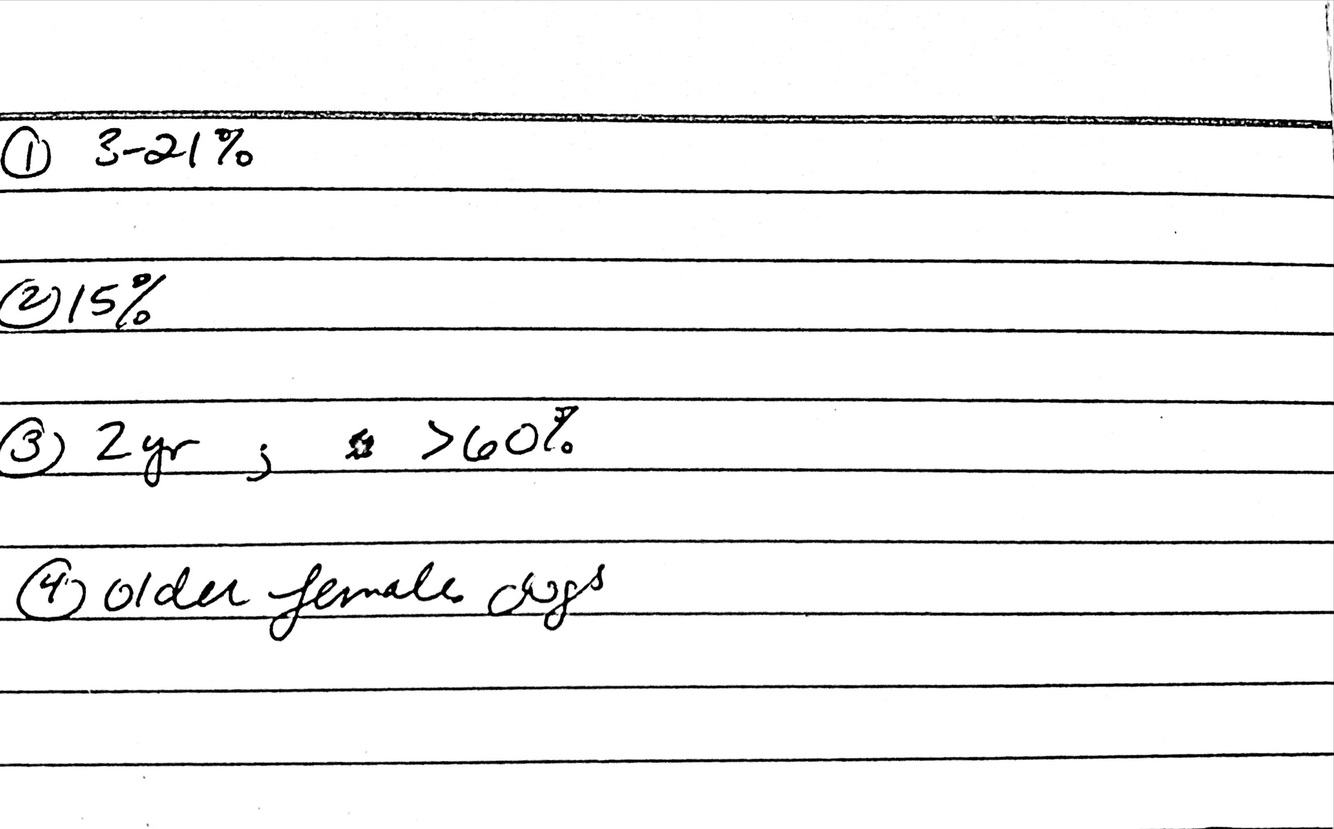 ① 3-21%
② 15%
③ 2yr ; >60%
④ older female dogs